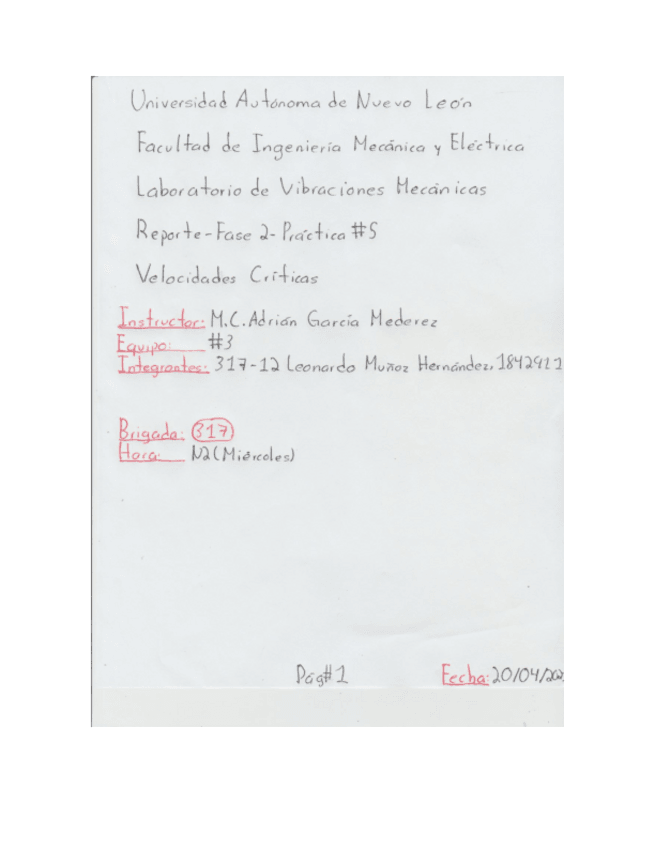 Universidad Autónoma de Nuevo León
Facultad de Ingeniería Mecánica y Eléctrica
Laboratorio de Vibraciones Mecánicas
Reporte-Fase 2-Práctica #5
Velocidades Críticas
Instructor: M.C. Adrián García Mederez
Equipo: #3
Integrantes: 317-12 Leonardo Muñoz Hernández, 1842911
Brigada: 317
Hora: N2 (Miércoles)
Pág#1
Fecha: 20/04/202